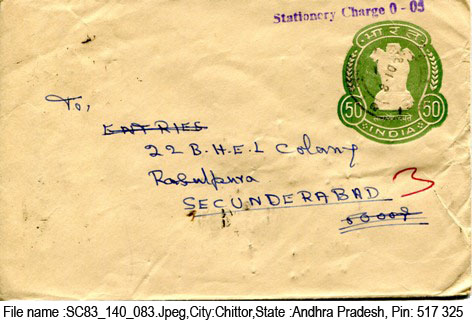 Stationery Charge 0-05
भारत
50 50
INDIA
To,
ENTRIES
22 B.H.E.L Colony
Rasulpura
SECUNDERABAD 3
File name :SC83_140_083.Jpeg,City:Chittor,State :Andhra Pradesh, Pin: 517 325